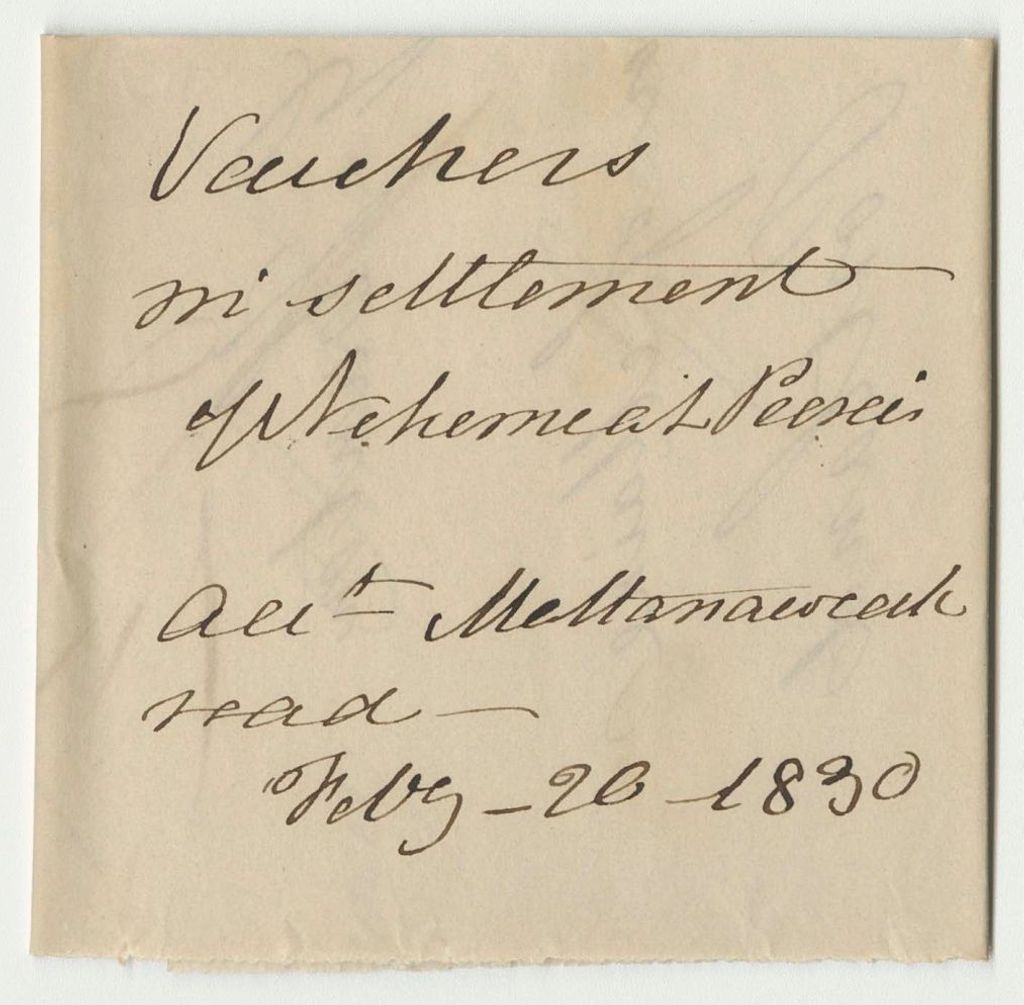 Vouchers
in settlement
of Nehemeah Peirceis
acct Mattanawcook
road —
Feby – 20 – 1830